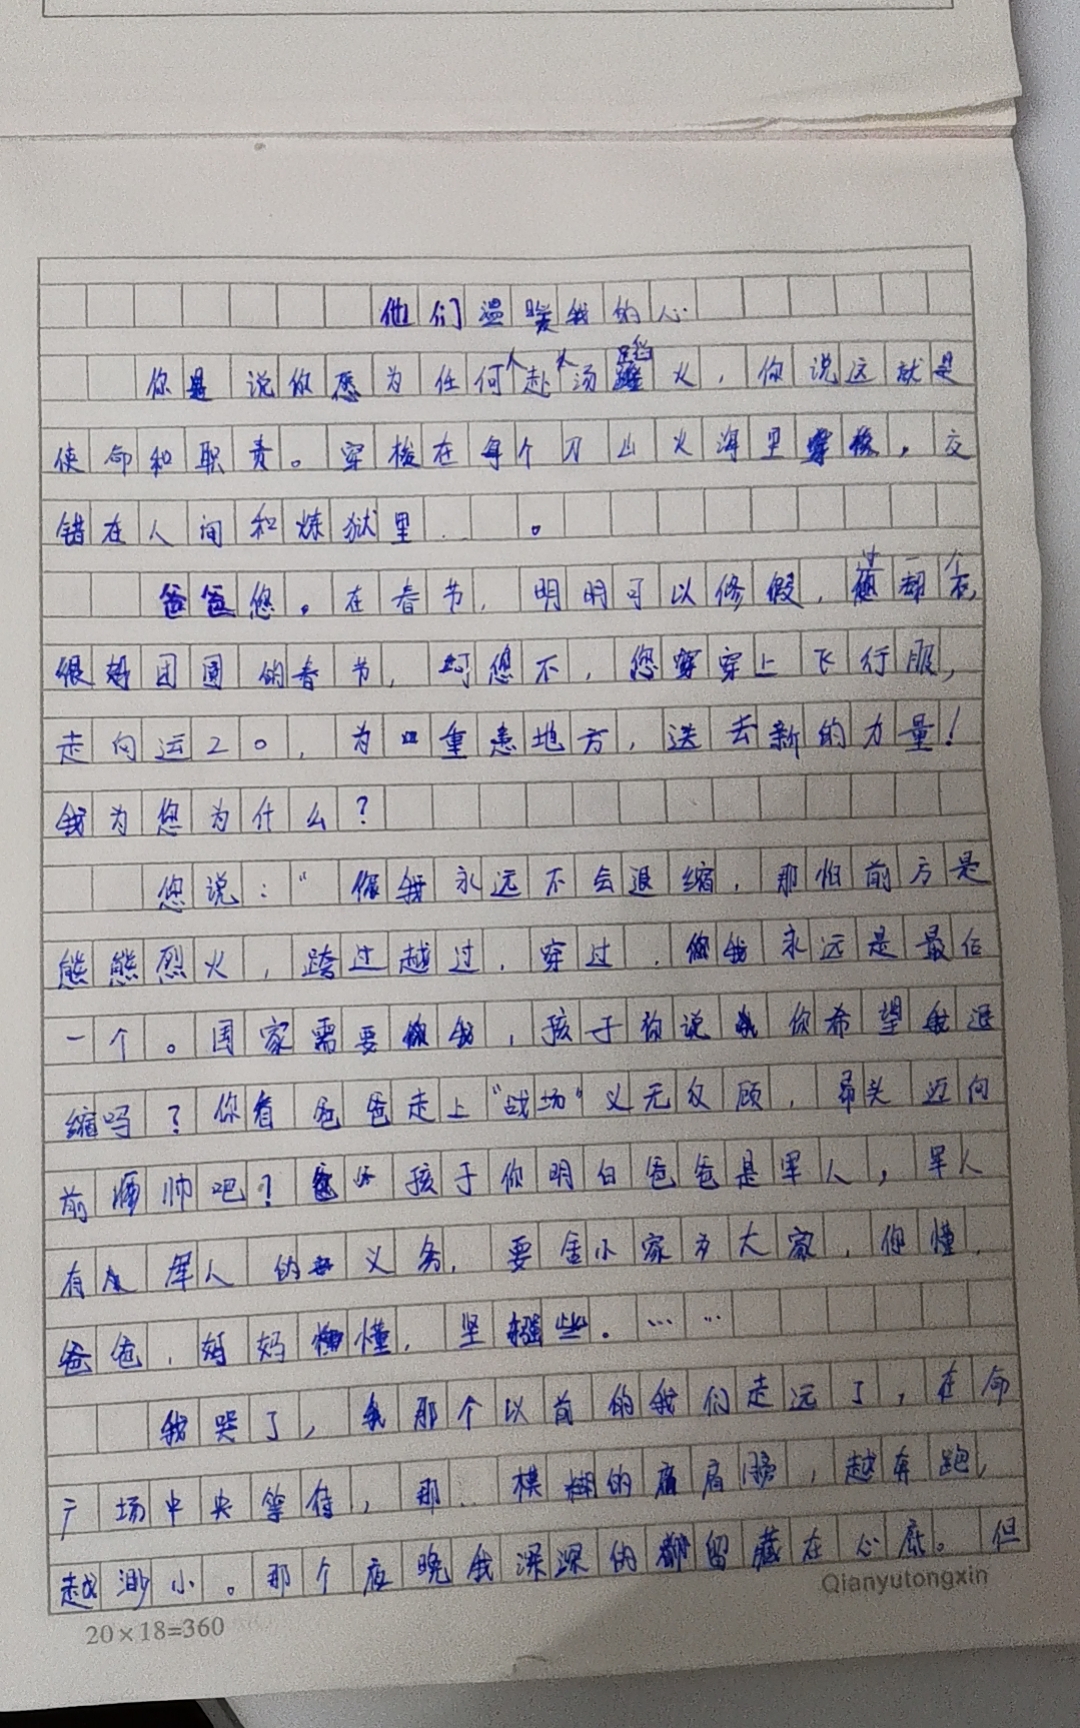 他们温暖我的心
你是说你愿为任何人赴汤蹈火，你说这就是
使命和职责。穿梭在每个刀山火海里穿梭，交
错在人间和炼狱里。
爸爸您。在春节，明明可以修假，过一个
很好团圆的春节，可您不，您穿穿上飞行服，
走向运20，为重患地方，送去新的力量！
我为您为什么？
您说：“你我永远不会退缩，那怕前方是
熊熊烈火，跨过越过，穿过，你我永远是最后
一个。国家需要你我，孩子你说你希望我退
缩吗？你看爸爸走上“战场”义无反顾，昂头迈向
前帅吧？孩子你明白爸爸是军人，军人
有军人的义务，要舍小家为大家，你懂，
爸爸，妈妈懂，坚强些。……
我哭了，我那个以前的我们走远了，在向
广场中央等待，那模糊的肩膀，越奔跑，
越渺小。那个夜晚我深深的留藏在心底。但
Qianyutongxin
20×18=360